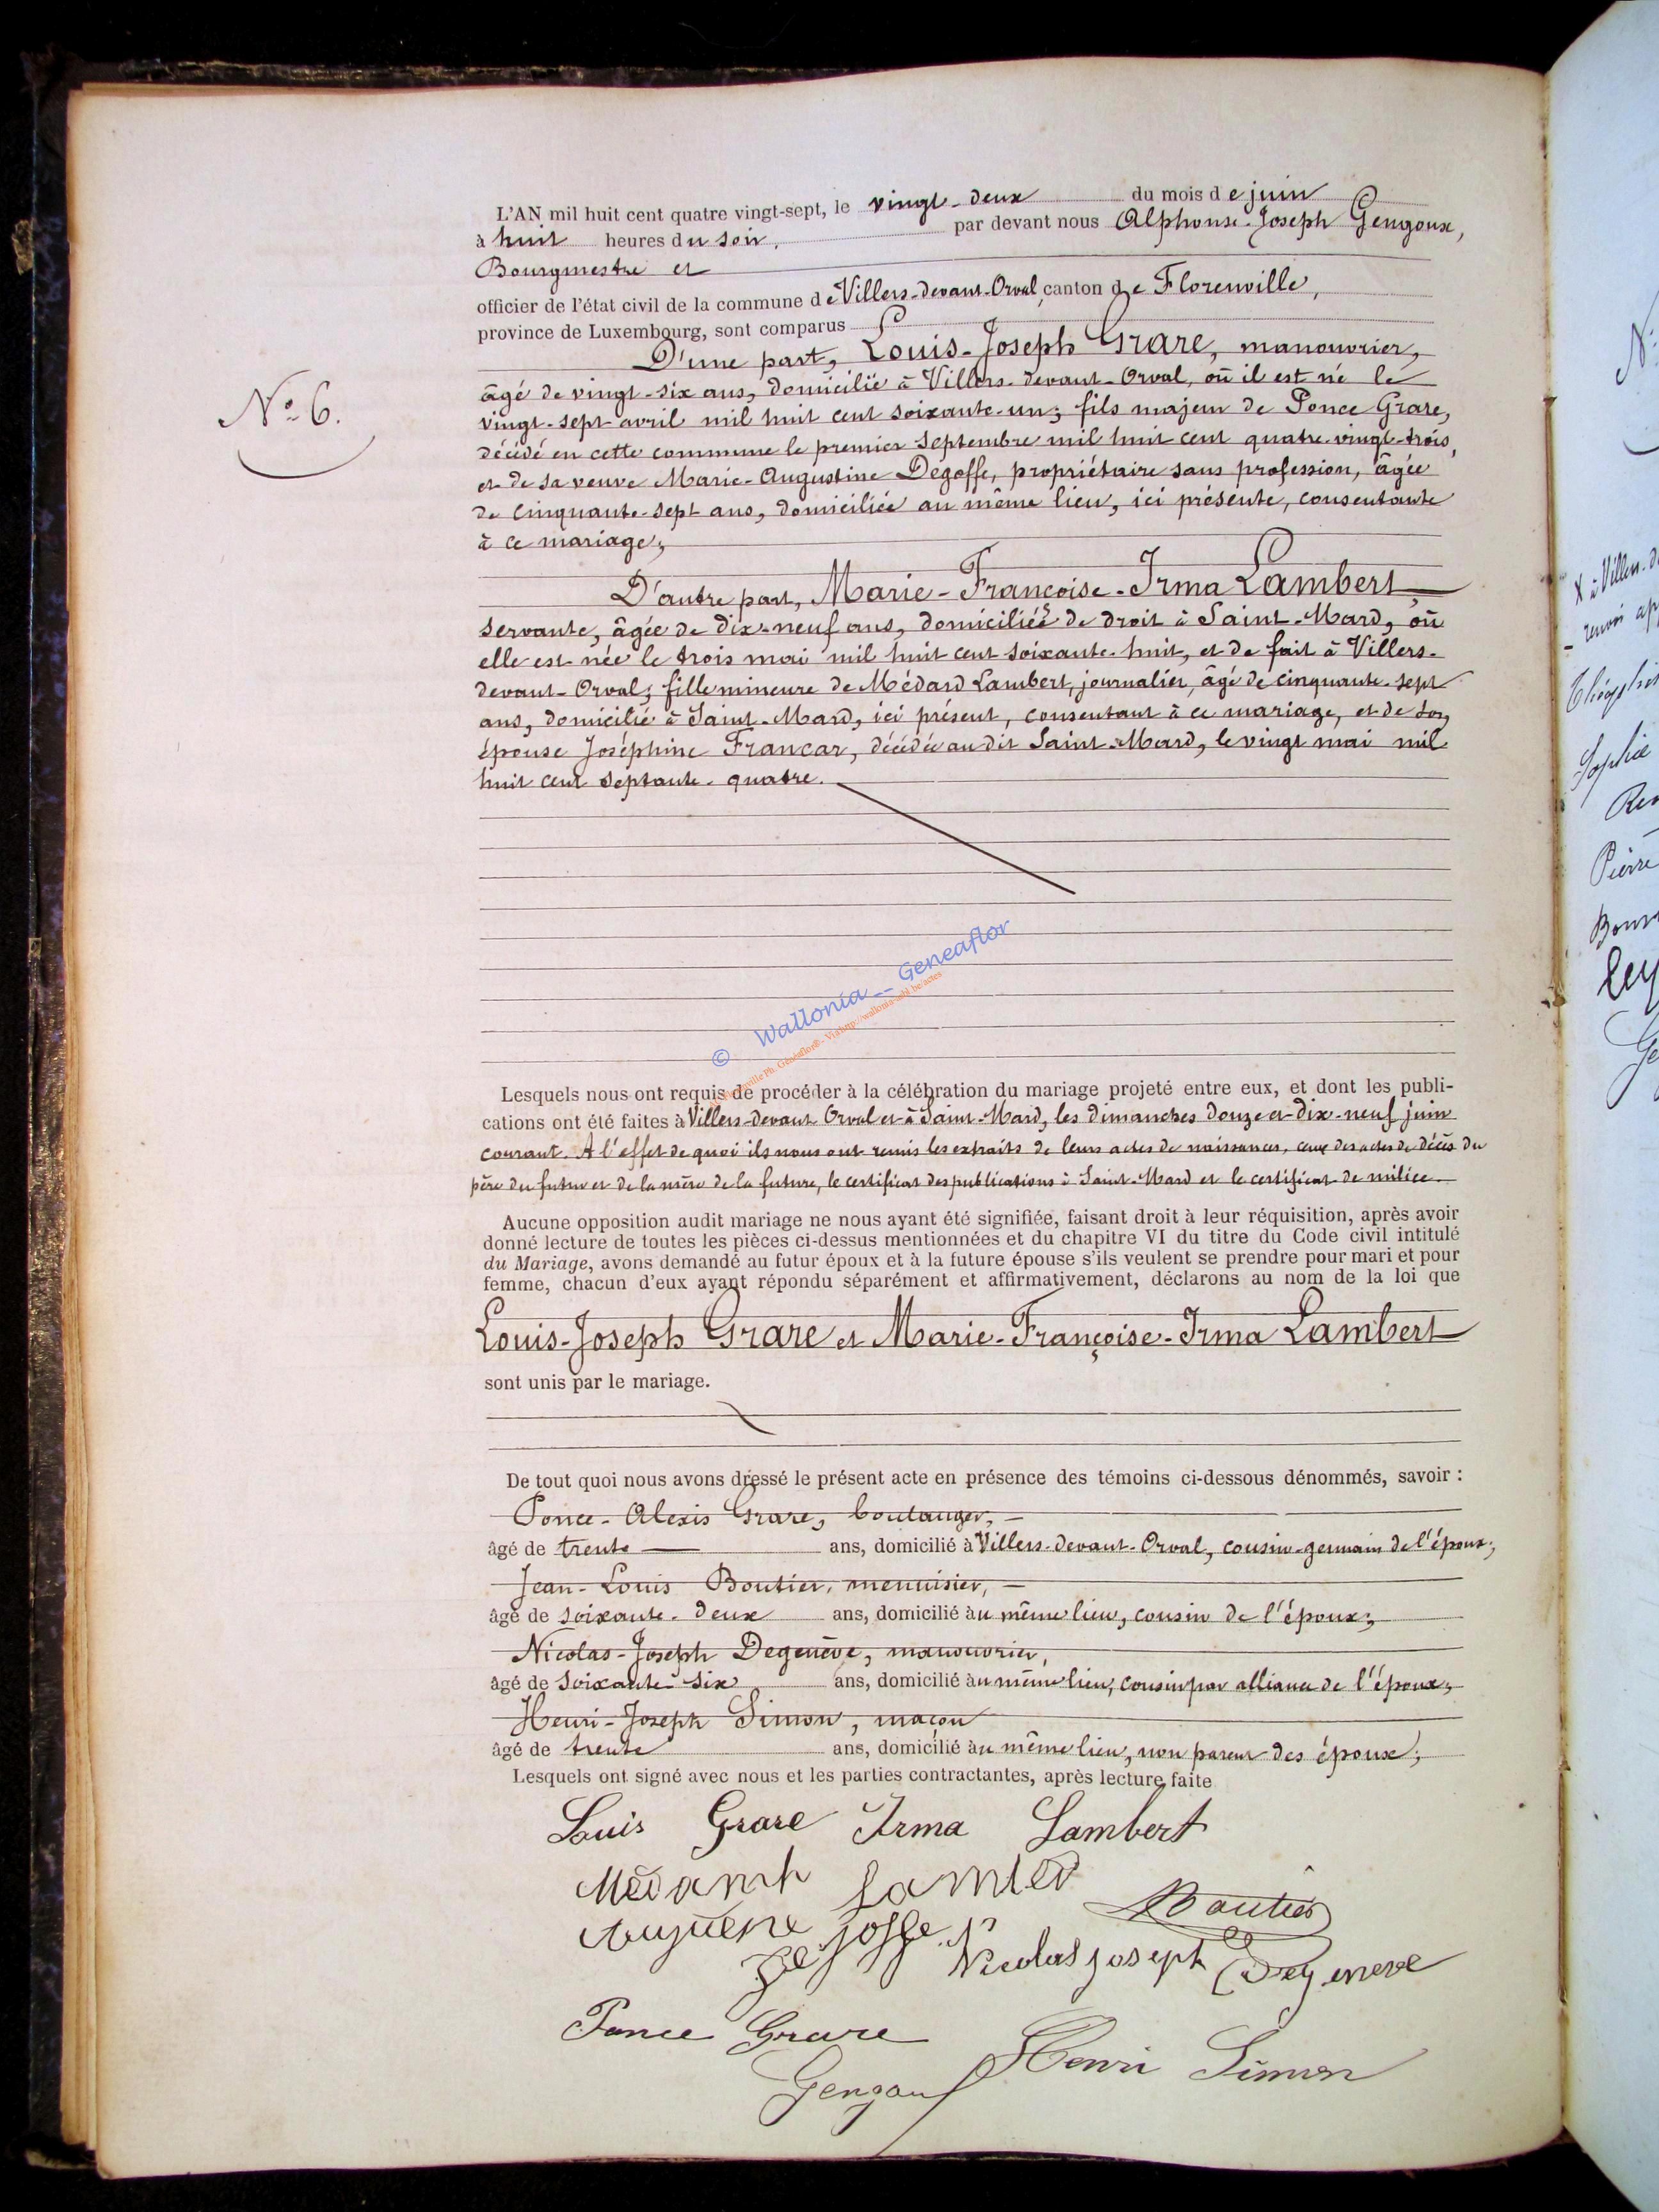 L'AN mil huit cent quatre vingt-sept, le vingt-deux du mois de juin
à huit heures du soir, par devant nous Alphonse-Joseph Gengoux,
Bourgmestre et
officier de l'état civil de la commune de Villers-devant-Orval, canton de Florenville,
province de Luxembourg, sont comparus
D'une part, Louis-Joseph Grare, manouvrier,
âgé de vingt-six ans, domicilié à Villers-devant-Orval, où il est né le
vingt-sept avril mil huit cent soixante-un; fils majeur de Ponce Grare,
décédé en cette commune le premier septembre mil huit cent quatre-vingt-trois,
et de sa veuve Marie-Augustine Degoffe, propriétaire sans profession, âgée
de cinquante-sept ans, domiciliée au même lieu, ici présente, consentante
à ce mariage;
No 6.
D'autre part, Marie-Françoise-Irma Lambert,
servante, âgée de dix-neuf ans, domiciliée de droit à Saint-Mard, où
elle est née le trois mai mil huit cent soixante-huit, et de fait à Villers-
devant-Orval; fille mineure de Médard Lambert, journalier, âgé de cinquante-sept
ans, domicilié à Saint-Mard, ici présent, consentant à ce mariage, et de son
épouse Joséphine Francar, décédée au dit Saint-Mard, le vingt mai mil
huit cent septante-quatre.
© Wallonia__Geneaflor
Ph. Généaflor®- Via http://wallonia-asbl.be/actes
Lesquels nous ont requis de procéder à la célébration du mariage projeté entre eux, et dont les publi-
cations ont été faites à Villers-devant-Orval et à Saint-Mard, les dimanches douze et dix-neuf juin
courant. A l'effet de quoi ils nous ont remis les extraits de leurs actes de naissances, ceux des actes de décès du
père du futur et de la mère de la future, le certificat des publications à Saint-Mard et le certificat de milice.
Aucune opposition audit mariage ne nous ayant été signifiée, faisant droit à leur réquisition, après avoir
donné lecture de toutes les pièces ci-dessus mentionnées et du chapitre VI du titre du Code civil intitulé
du Mariage, avons demandé au futur époux et à la future épouse s'ils veulent se prendre pour mari et pour
femme, chacun d'eux ayant répondu séparément et affirmativement, déclarons au nom de la loi que
Louis-Joseph Grare et Marie-Françoise-Irma Lambert
sont unis par le mariage.
De tout quoi nous avons dressé le présent acte en présence des témoins ci-dessous dénommés, savoir :
Ponce-Alexis Grare, boulanger,
âgé de trente ans, domicilié à Villers-devant-Orval, cousin-germain de l'époux;
Jean-Louis Boutier, menuisier,
âgé de soixante-deux ans, domicilié au même lieu, cousin de l'époux;
Nicolas-Joseph Degenève, manouvrier,
âgé de soixante-six ans, domicilié au même lieu, cousin par alliance de l'époux;
Henri-Joseph Simon, maçon
âgé de trente ans, domicilié au même lieu, non parent des époux;
Lesquels ont signé avec nous et les parties contractantes, après lecture faite
Louis Grare Irma Lambert
Boutier
Nicolas joseph Degeneve
Ponce Grare
Henri Simon
Gengoux